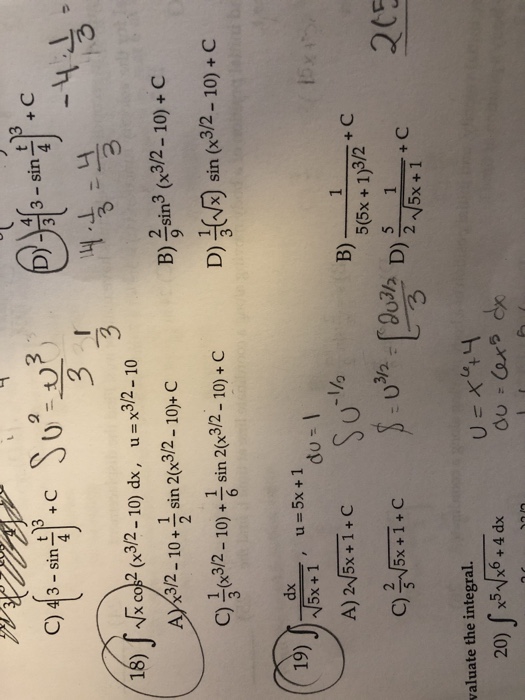 C) 4(3 − sin t/4)³ + C
D) −4/3(3 − sin t/4)³ + C
∫u² = u³/3
1/3
4 · 1/3 = 4/3
− 4 · 1/3 =
18) ∫ √x cos² (x^3/2 − 10) dx, u = x^3/2 − 10
A) x^3/2 − 10 + 1/2 sin 2(x^3/2 − 10) + C
B) 2/9 sin³ (x^3/2 − 10) + C
C) 1/3 (x^3/2 − 10) + 1/6 sin 2(x^3/2 − 10) + C
D) 1/3 (√x) sin (x^3/2 − 10) + C
19) ∫ dx/√5x + 1 , u = 5x + 1
du = 1
A) 2√5x + 1 + C
∫u^-1/2
B) 1/5(5x + 1)^3/2 + C
C) 2/5 √5x + 1 + C
= u^3/2 = [2u^3/2/3
D) 5/2 1/√5x + 1 + C
valuate the integral.
20) ∫ x⁵ √x⁶ + 4 dx
u = x⁶ + 4
du = 6x⁵ dx